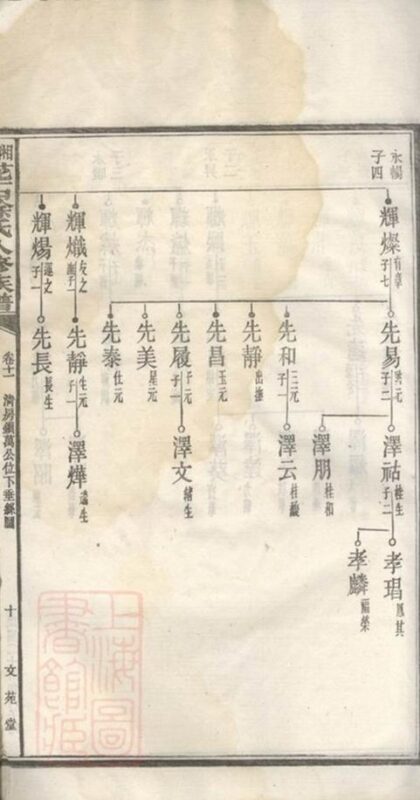 永暢
子四
輝燦 有章 子七
先易 洪元 子二
澤祜 桂生 子二
孝琩 鳳其
孝麟 福榮
澤朋 桂和
先和 三元 子一
澤云 桂馥
先靜 出撫
先昌 玉元
先履 千元 子一
澤文 緒生
先美 星元
先泰 仕元
輝熾 友之
先靜 生元 子一
澤燁 遠生
輝煬 運之 子一
先長 長生
湘
氏八修族譜
卷十一
清房鎮萬公位下垂絲圖
十
文苑堂
上海圖書館藏